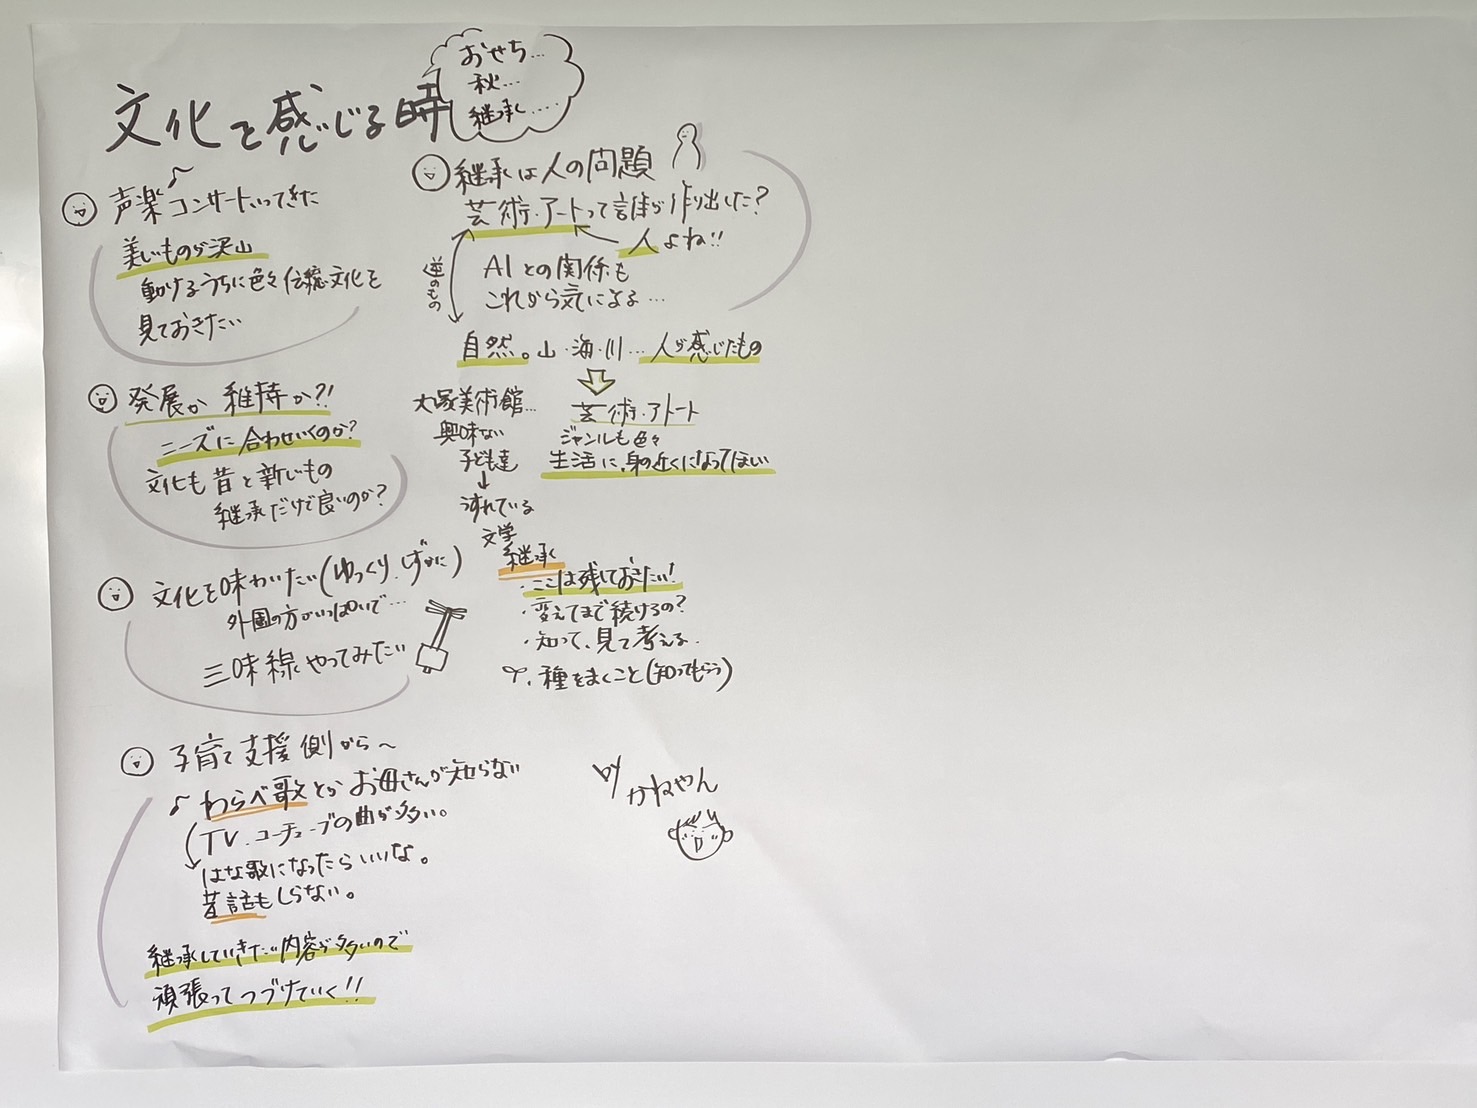 文化を感じる時
おせち…
秋…
継承…‥
声楽コンサートいってきた
美しいものが沢山
動けるうちに色々伝統文化を
見ておきたい
発展か維持か?!
ニーズに合わせいくのか?
文化も昔と新しいもの
継承だけで良いのか?
文化を味わいたい(ゆっくり.しずかに)
外国の方がいっぱいで…
三味線やってみたい
子育て支援側から〜
わらべ歌とかお母さんが知らない
TV.ユーチューブの曲が多い。
はな歌になったらいいな。
昔話もしらない。
継承していきたい内容が多いので
頑張ってつづけていく!!
継承は人の問題
芸術・アートって誰が作り出した?
人よね!!
逆のもの
AIとの関係も
これから気になる…
自然。山・海・川…人が感じたもの
芸術・アート
ジャンルも色々
生活に、身の近くになってほしい
大塚美術館…
興味ない
子ども達
うすれている
文学
継承
・ここは残しておきたい!
・変えてまで続けるの?
・知って、見て考える.
・種をまくこと(知ってもらう)
by
かねやん